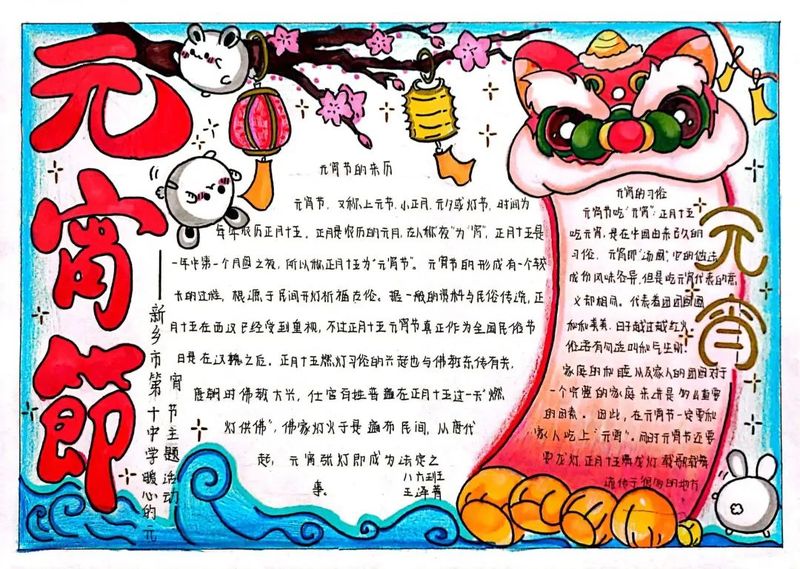 元宵節
新乡市第十中学暖心的元
宵节主题活动
元宵节的来历
元宵节，又称上元节、小正月、元夕或灯节，时间为
每年农历正月十五，正月是农历的元月，古人称夜"为"宵"，正月十五是
一年中第一个月圆之夜，所以称正月十五为"元宵节"。元宵节的形成有一个较
长的过程，根源于民间开灯祈福古俗。据一般的资料与民俗传说，正
月十五在西汉已经受到重视，不过正月十五元宵节真正作为全国民俗节
日是在汉魏之后。正月十五燃灯习俗的兴起也与佛教东传有关，
唐朝时佛教大兴，仕官百姓普遍在正月十五这一天"燃
灯供佛"，佛家灯火于是遍布民间，从唐代
起，元宵张灯即成为法定之
事。
八六班
元宵的习俗
元宵节吃"元宵"：正月十五
吃元宵，是在中国由来已久的
习俗，元宵即"汤圆"，它的做法
成份风味各异，但是吃元宵代表的意
义却相同。代表着团团圆圆
和和美美，日子越过越红火
俗语有句
家庭的和睦以及家人的团圆对于
一个完整的家庭来讲是多么重要
的因素。因此，在元宵节一定要和
家人吃上"元宵"。同时元宵节还要
耍龙灯，正月十五
流传于很多的地方
元宵